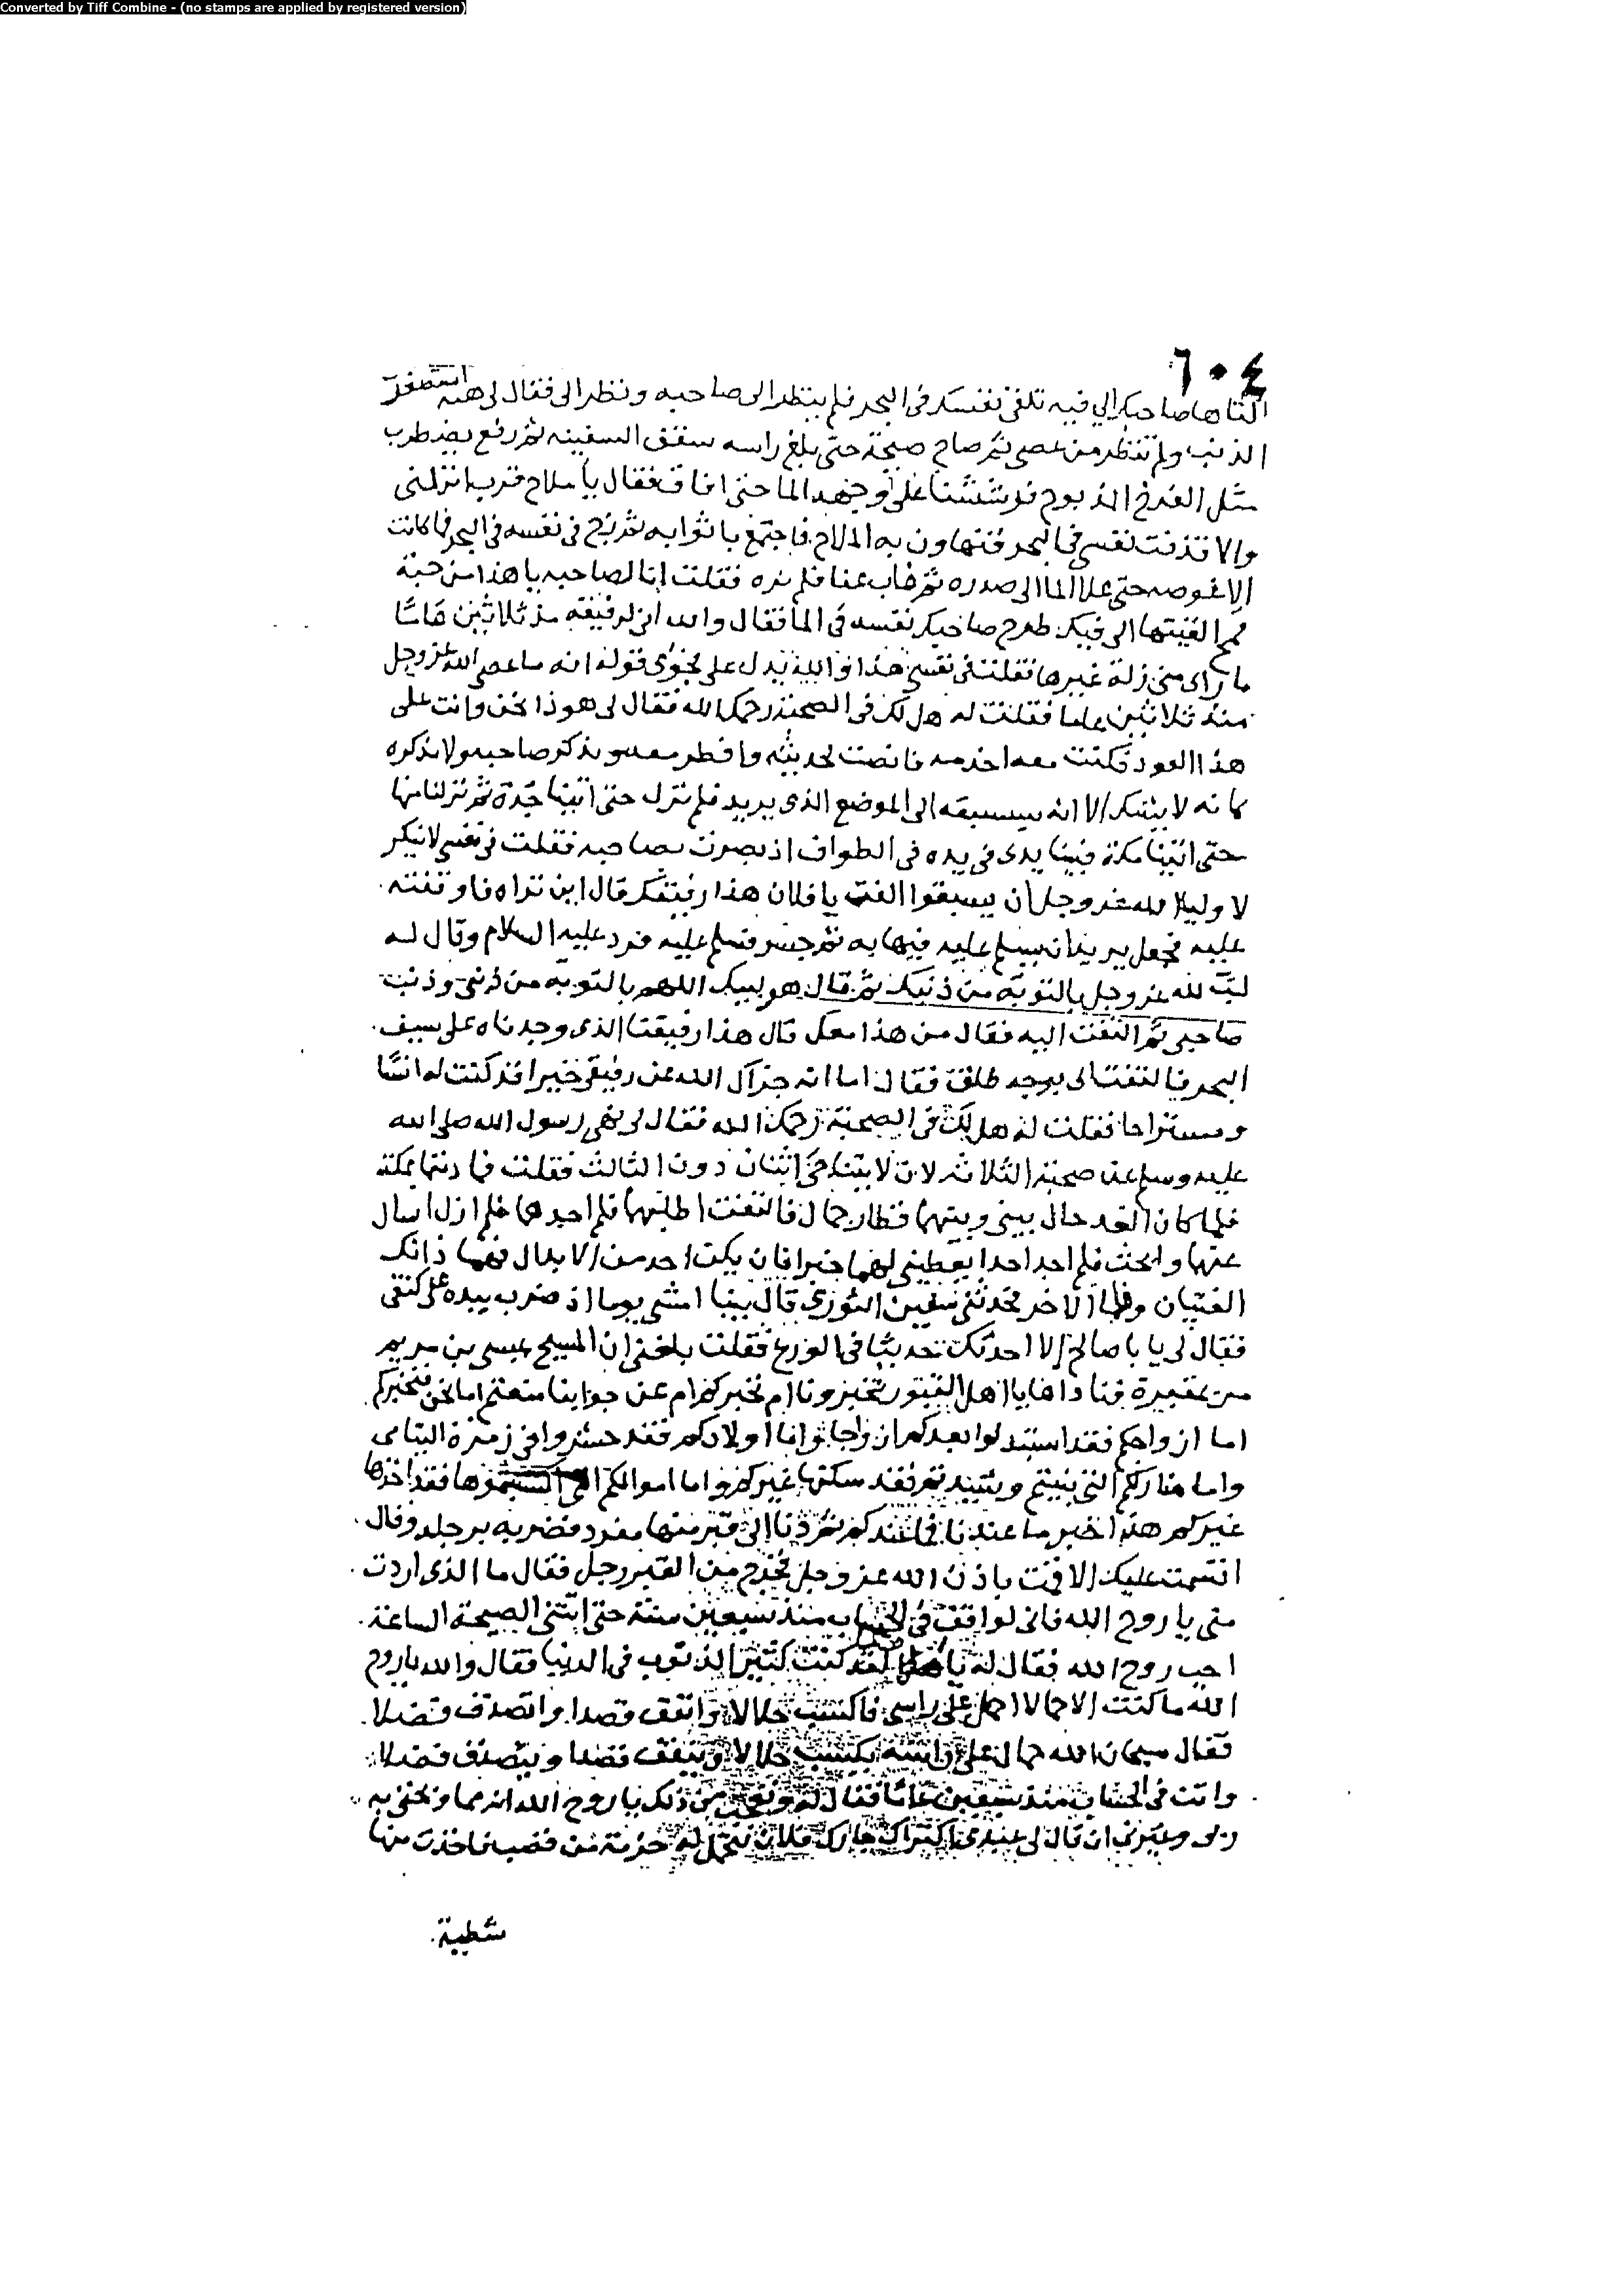 Converted by Tiff Combine - (no stamps are applied by registered version)
٦٠٤
القاها صاحبك الي فيه تلقى نفسك فى البحر فلم ينظر الى صاحبه ونظر الى فقال لى هنه استصغرت
الذنب ولم تنظر من عصى ثم صاح صيحة حتى بلغ راسه سقف السفينه ثم رفع يضطرب
مثل الفرخ المذبوح فرششنا على وجهه الما حتى افاق فقال يا ملاح قرب انزلنى
والا قذفت نفسى فى البحر فتهاون به الملاح فاجتمع باثوابه ثم زج فى نفسه فى البحر فما كانت
الا غوصه حتى علا الما الى صدره ثم غاب عنا فلم نره فقلت انا لصاحبه يا هذا من حبة
قمح القيتها الى فيك طرح صاحبك نفسه فى الما فقال والله انى لرفيقه مذ ثلاثين عاما
ما راى منى زلة غيرها فقلت فى نفسى هذا والله يدل على فحوى قوله انه ما عصى الله عز وجل
منذ ثلاثين عاما فقلت له هل لك فى الصحبة رحمك الله فقال لى هو ذا نحن وانت على
هذا العود فكنت معه اخدمه فانصت لحديثه وافطر معه ويذكر صاحبه ولا نذكره
كانه لا يشك الا انه سيسبقه الى الموضع الذى يريد فلم نزل حتى اتينا جدة ثم نزلنا منها
حتى اتينا مكة فبينا يدى فى يده فى الطواف اذ بصرت بصاحبه فقلت فى نفسى لا ينكر
لاوليا الله عز وجل ان يسبقوا الفت يا فلان هذا رفيقك قال اين تراه فاوقفته
عليه فجعل يريد ان يسلم عليه فيهابه ثم جسر فسلم عليه فرد عليه السلام وقال له
لب لله عز وجل بالتوبة من ذنبك ثم قال هو لبيك اللهم بالتوبة من ذنبى وذنب
صاحبى ثم التفت اليه فقال من هذا معك قال هذا رفيقنا الذى وجدناه على سيف
البحر فالتفت الى بوجه طلق فقال اما انه جزاك الله عن رفيقى خيرا فقد كنت له انسا
ومستراحا فقلت له هل لك فى الصحبة رحمك الله فقال لى نهى رسول الله صلى الله
عليه وسلم عن صحبة الثلاثه لان لا يتناجى اثنان دون الثالث فقلت فما دمتما بمكة
فلما كان الغد حال بينى وبينهما قطار جمال فالتفت اطلبهما فلم اجدهما فلم ازل اسال
عنهما وابحث فلم اجد احدا يعطينى لهما خبرا فان يكن احد من الابدال فهما ذانك
الفتيان واما الاخر فحدثنى سفين الثورى قال بينا امشى يوما اذ ضرب بيده على كتفى
فقال لى يا با صالح الا احدثك حديثا فى الورع فقلت بلغنى ان المسيح عيسى بن مريم
مر بمقبرة فناداها يا اهل القبور تخبرونا ام نخبركم ام عن جوابنا منعتم اما نحن فنخبركم
اما ازواجكم فقد استبدلوا بعدكم ازواجا واما اولادكم فقد حشروا فى زمرة اليتامى
واما منازلكم التى بنيتم وشيدتم فقد سكنها غيركم واما اموالكم التى اكتسبتموها فقد اخذها
غيركم هذا خبر ما عندنا فما عندكم ثم دنا الى قبر منها مفرد فضربه برجله وقال
اقسمت عليك الا قمت باذن الله عز وجل فخرج من القبر رجل فقال ما الذى اردت
منى يا روح الله فانى لواقف فى الحساب منذ سبعين سنة حتى اتتنى الصيحة الساعة
اجب روح الله فقال له يا هذا لقد كنت كثير الذنوب فى الدنيا فقال والله يا روح
الله ما كنت الا حمالا احمل على راسى فاكتسب حلالا وانفق قصدا واتصدق فضلا
فقال سبحان الله حمال على راسه يكتسب حلالا وينفق قصدا ويتصدق فضلا
وانت فى الحساب منذ سبعين عاما فقال له وتعجب من ذلك يا روح الله انه مما وبخنى به
ربى وعيرنى ان قال لى عبدى اكتراك جارك فلان لتحمل له حزمة من قصب فاخذت منها
شظية